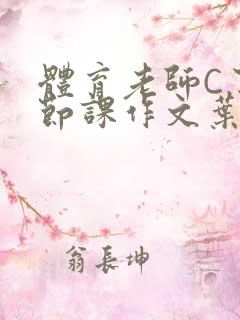 體育老師C
節課作文葉
翁長坤